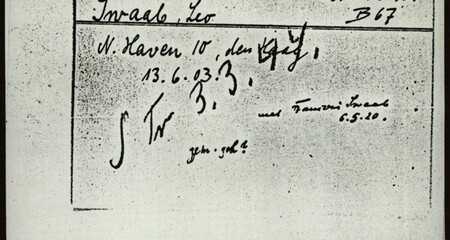 Swaab, Leo
B67
N. Haven 10, den Haag.
13.6.03.
3.3.44.
S Tr
Swaab
6.5.20.
gem. geh?